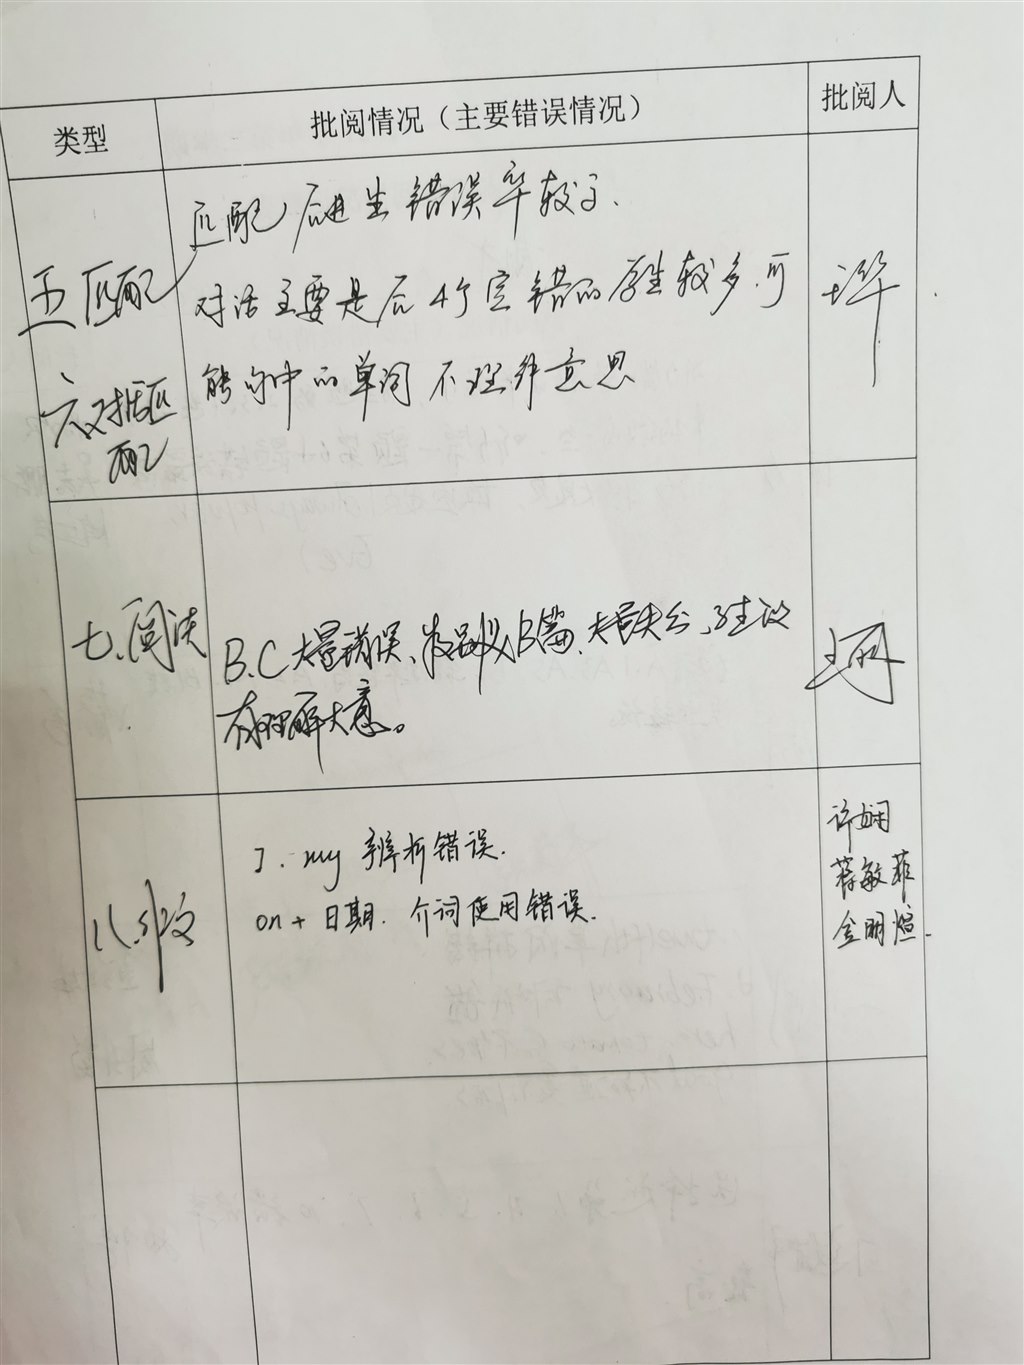 类型
批阅情况（主要错误情况）
批阅人
五匹配
六对话匹
配
匹配后进生错误率较高.
对话主要是后4个空错的学生较多.可
能句中的单词不理解意思
七.阅读
B.C大量错误、特别是B篇、大量失分、学生没
有理解大意。
八.作文
I. my 辨析错误.
on + 日期. 介词使用错误.
许娴
蒋敏菲
金明煊.